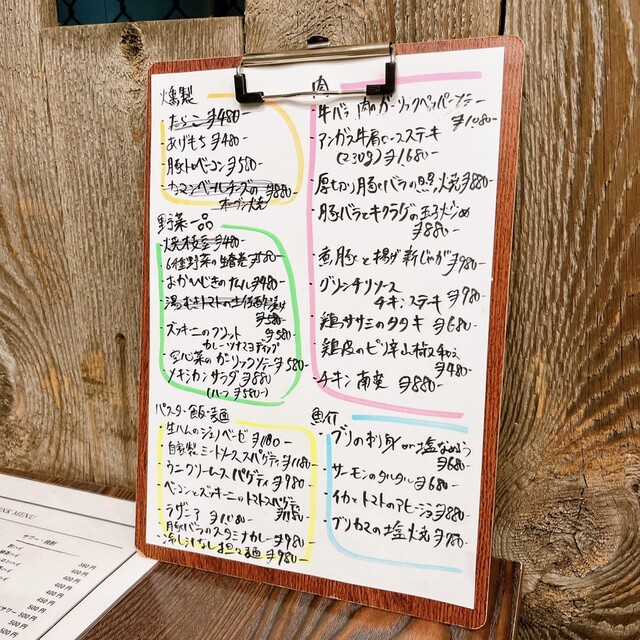 燻製
・たらこ ¥480-
・あげもち ¥480-
・豚トロベーコン ¥580-
・カマンベールチーズの ¥880-
オーブン焼
野菜一品
・焼枝豆 ¥480-
・6種野菜の生春巻 ¥580-
・おかひじきのナムル ¥480-
・湯むきトマトの
¥580-
・ズッキーニのフリット ¥580-
カレーツナマヨディップ
・空心菜のガーリックソテー ¥580-
・メキシカンサラダ ¥880-
(ハーフ ¥580-)
パスタ・飯・麺
・生ハムのジェノベーゼ ¥1180-
・自家製ミートソーススパゲティ ¥1180-
・ウニクリームスパゲティ ¥980-
・ベーコンとズッキーニのトマトスパゲティ
¥1180-
・ラザニア ¥1080-
・豚バラのスタミナカレー ¥980-
・冷し汁なし担々麺 ¥980-
肉
・牛バラ肉のガーリックペッパーソテー
¥1,080-
・アンガス牛肩ロースステーキ
(230g) ¥1,680-
・厚切り豚バラの照焼 ¥880-
・豚バラとキクラゲの玉子炒め
¥880-
・煮豚と揚げ新じゃが ¥980-
・グリーンチリソース
チキンステーキ ¥980-
・鶏ササミのタタキ ¥680-
・鶏皮のピリ辛山椒和え
¥480-
・チキン南蛮 ¥880-
魚介
・ブリのお刺身 or 塩なめろう
¥680-
・サーモンのタルタル ¥680-
・イカとトマトのアヒージョ ¥880-
・ブリカマの塩焼 ¥780-
NK MENU
サワー・焼酎
350円
400円
400円
450円
400円
500円
500円
500円